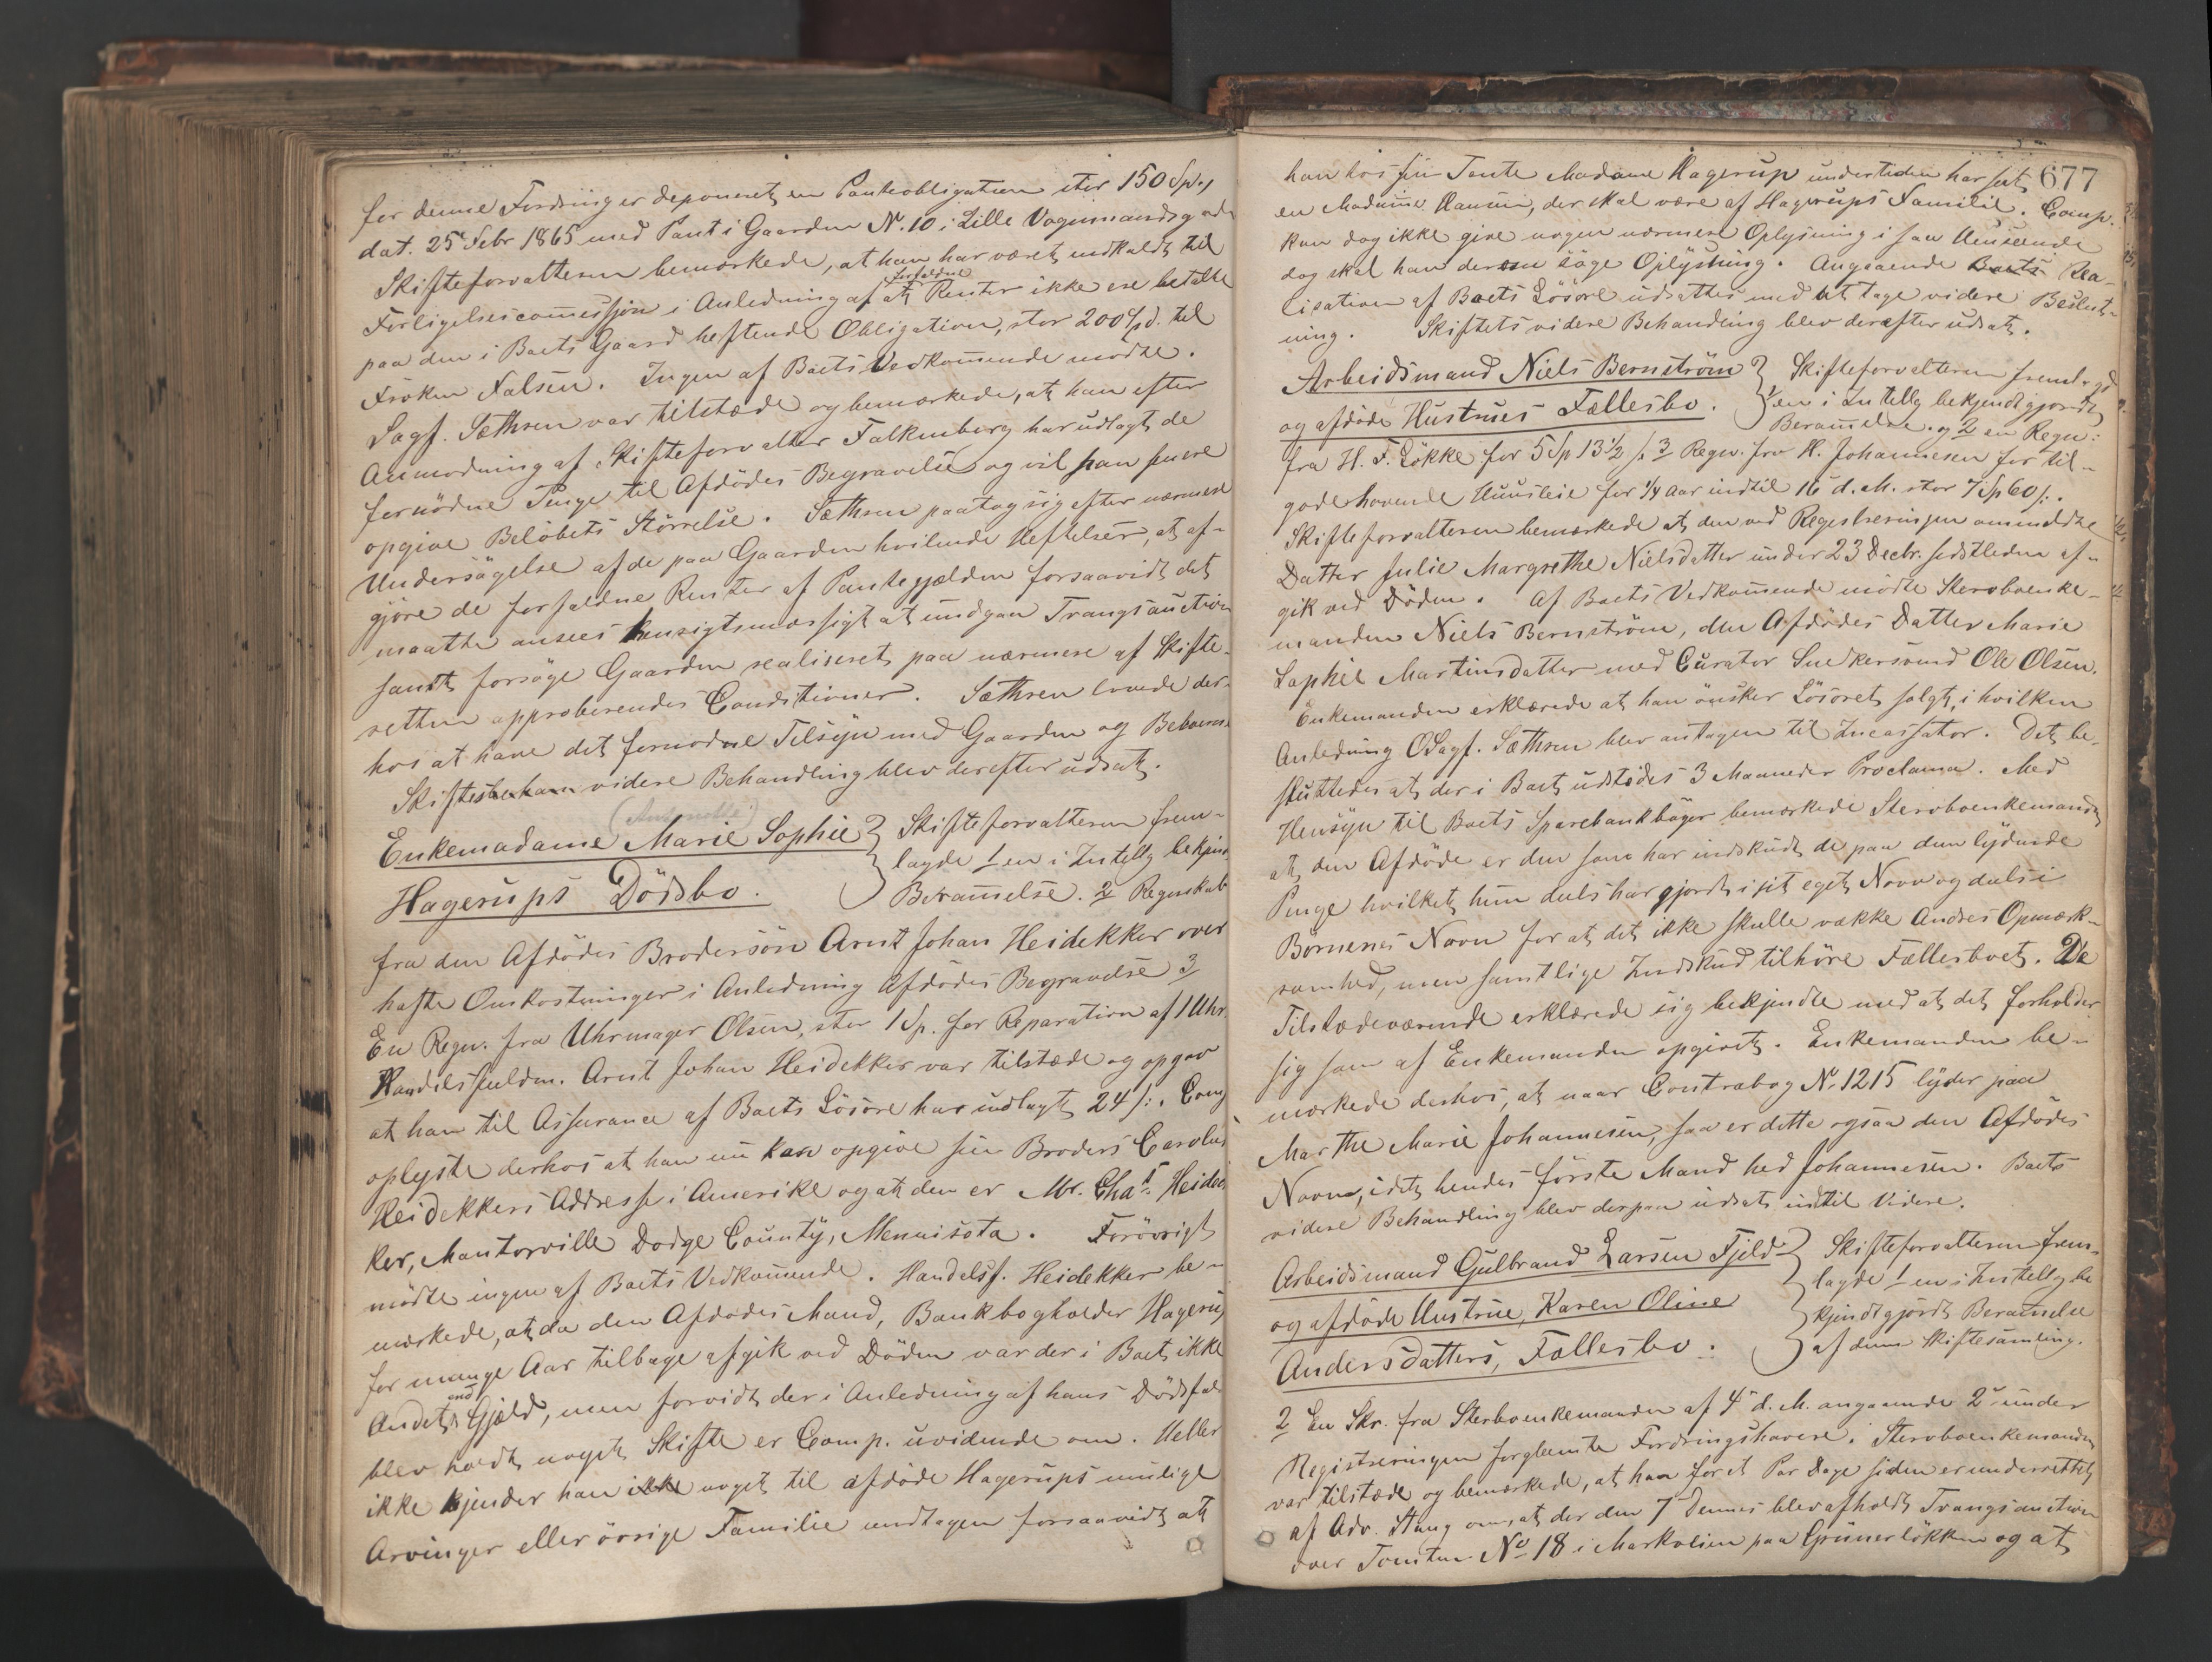 for denne Fordring er deponeret en Panteobligation stor 150 Sp.,
dat. 25 Febr 1865 med Pant i Gaarden N. 10 i Lille Vognmandsgade
Skifteforvalteren bemærkede, at han har været indkaldt til
Forligelsescommissjon i Anledning af at forfaldne Renter ikke ere betalte
paa den i Boets Gaard heftende Obligation, stor 200 Spd. til
Frøken Falsen. Ingen af Boets Vedkommende mødte.
Sagf. Sæthren var tilstæde og bemærkede, at han efter
Anmodning af Skifteforvalter Falkenberg har udlagt de
fornødne Penge til Afdødes Begravelse og vil han senere
opgive Beløbets Størrelse. Sæthren paatog sig efter nærmere
Undersøgelse af de paa Gaarden hvilende Heftelser, at af-
gjøre de forfaldne Renter af Pantegjælden forsaavidt det
maatte ansees hensigtsmæssigt at undgaa Tvangsauction
samt forsøge Gaarden realiseret paa nærmere af Skifte-
retten approberendes Conditioner. Sæthren lovede der-
hos at have det fornødne Tilsyn med Gaarden og Beboerne
Skiftets videre Behandling blev derefter udsat.
Enkemadame Marie Sophie
Hagerups Dødsbo.
Skifteforvalteren frem-
lagde 1 en i Intellg bekjendt
Berammelse. 2 Regnskab
fra den Afdødes Brodersøn Arnt Johan Heidekker over
hafte Omkostninger i Anledning Afdødes Begravelse 3
En Regn. fra Uhrmager Olsen, stor 1 Sp. for Reparation af 1 Uhr.
Handelsfuldm. Arnt Johan Heidekker var tilstæde og opgav
at han til Assurance af Boets Løsøre har udlagt 24 s. Comp
oplyste derhos at han nu kan opgive sin Broders Carolus
Heidekkers Addresse i Amerika og at den er Mr. Chas. Heidec
ker, Mantorville Dodge County, Mennisota. Forøvrigt
mødte ingen af Boets Vedkommende. Handelsf. Heidekker be-
mærkede, at da den Afdødes Mand, Bankbogholder Hagerup
for mange Aar tilbage afgik ved Døden var der i Boet ikke
Andet end Gjæld, men forvidt der i Anledning af hans Dødsfald
blev holdt noget Skifte er Comp. uvidende om. Heller
ikke kjender han ikke noget til afdøde Hagerups mulige
Arvinger eller øvrige Familie undtagen forsaavidt at
677
han hos sin Tante Madame Hagerup undertiden har seet
en Madame Hansen, der skal være af Hagerups Familie. Comp.
kan dog ikke give nogen nærmere Oplysning i saa Henseende
dog skal han derom søge Oplysning. Angaaende Boets Rea-
lisation af Boets Løsøre udsattes med at tage videre Beslut-
ning. Skiftets videre Behandling blev derefter udsat.
Arbeidsmand Niels Bernstrøm
og afdøde Hustrues Fællesbo.
Skifteforvalteren fremlagde
1 en i Intellg bekjendtgjordt
Berammelse. og 2 en Regn:
fra H. F. Løkke for 5 Sp 13 1/2 s. 3 Regn. fra H. Johannesen for til-
godehavende Huusleie for 1/4 Aar indtil 16 d. M. stor 7 Sp 60 s.
Skifteforvalteren bemærkede at den ved Registreringen anmeldte
Datter Julie Margrethe Nielsdatter under 23 Decbr. sidstleden af-
gik ved Døden. Af Boets Vedkommende mødte Stervboenke-
manden Niels Bernstrøm, den Afdødes Datter Marie
Sophie Martinsdatter med Curator Snedkersvend Ole Olsen.
Enkemanden erklærede at han ønsker Løsøret solgt, i hvilken
Anledning OSagf. Sæthren blev antagen til Incassator. Det be-
sluttedes at der i Boet udstødes 3 Maaneders Proclama. Med
Hensyn til Boets Sparebankbøger bemærkede Stervboenkemanden
at den Afdøde er den som har indskudt de paa dem lydende
Penge hvilket hun dels har gjordt i sit eget Navn og dels i
Børnenes Navn for at det ikke skulle vække Andres Opmærk-
somhed, men samtlige Indskud tilhøre Fællesboet. De
Tilstædeværende erklærede sig bekjendte med at det forholder
sig som af Enkemanden opgivet. Enkemanden be-
mærkede derhos, at naar Contrabog N. 1215 lyder paa
Marthe Marie Johannesen, saa er dette ogsaa den Afdødes
Navn, idet hendes første Mand hed Johannesen. Boets
videre Behandling blev derpaa udsat indtil Videre.
Arbeidsmand Gulbrand Larsen Fjeld
og afdøde Hustrue, Karen Oline
Andersdatters, Fællesbo.
Skifteforvalteren frem-
lagde 1 en i Intellg be
kjendtgjordt Berammelse
af denne Skiftesamling.
2 En Skr. fra Stervboenkemanden af 4 d. M. angaaende 2 under
Registreringen forglemte Fordringshavere. Stervboenkemanden
var tilstæde og bemærkede, at han for et Par Dage siden er underrettet
af Adv. Stang om, at der den 7 dennes blev afholdt Tvangsauction
over Tomten No 18 i Markveien paa Grünerløkken og at